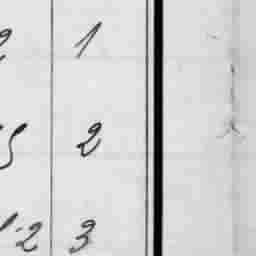 2 1
5 2
1-2 3